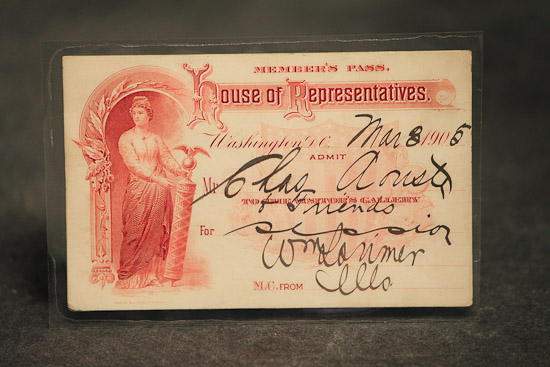 MEMBER'S PASS.
House of Representatives.
Washington D.C. Mar 3 1905
ADMIT
Mr Chas
TO THE VISITOR'S GALLERY
& Friends
For session
Wm Lorimer
M.C. FROM Ills